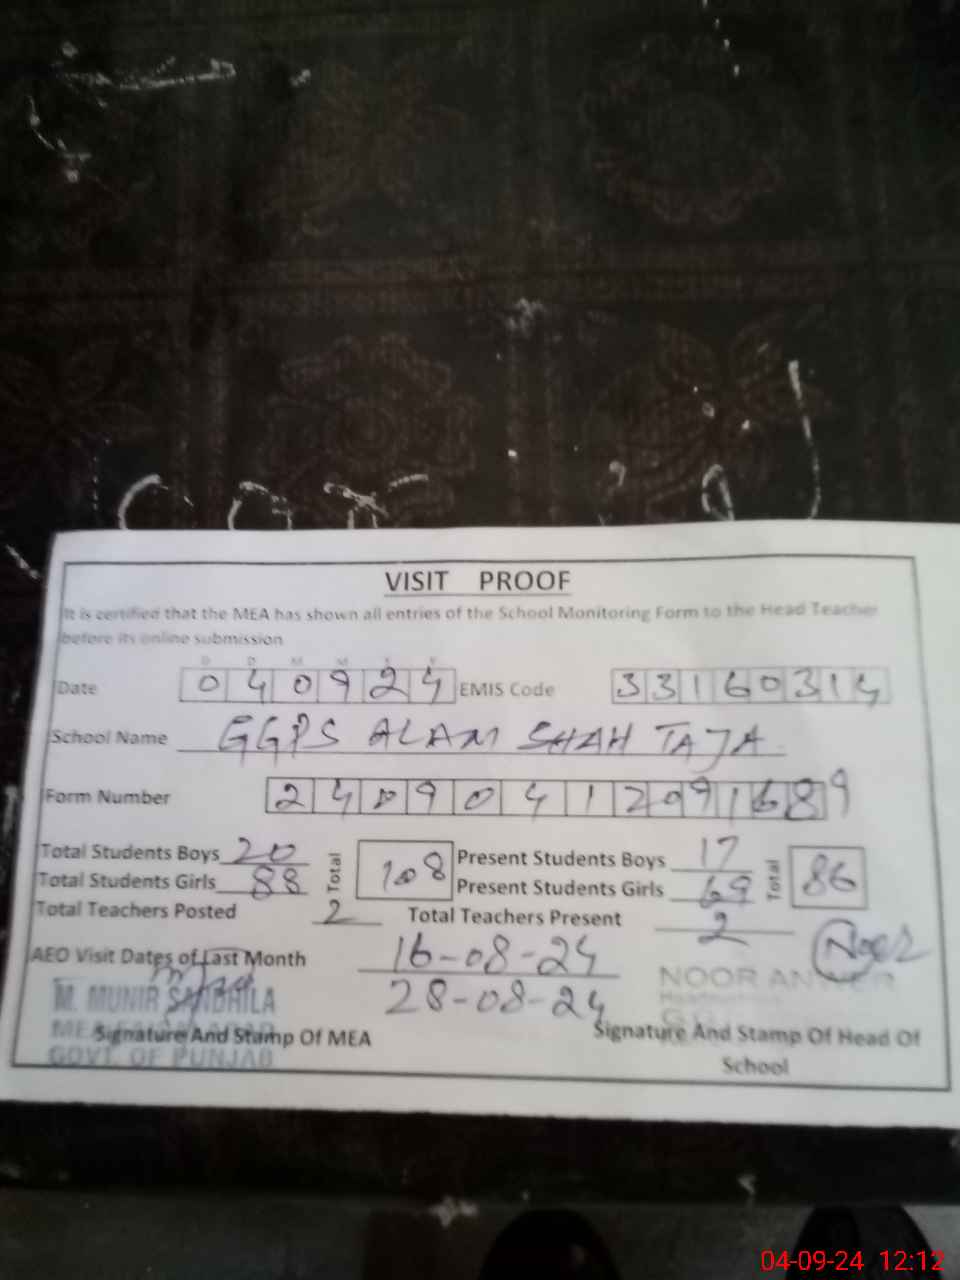 VISIT PROOF
It is certified that the MEA has shown all entries of the School Monitoring Form to the Head Teacher
before its online submission
D D M M Y Y
Date 040924 EMIS Code 33160314
School Name GGPS ALAM SHAH TAJA
Form Number 24090412091689
Total Students Boys 20 Total 108 Present Students Boys 17 Total 86
Total Students Girls 88 Present Students Girls 69
Total Teachers Posted 2 Total Teachers Present 2
Noor
AEO Visit Dates of Last Month 16-08-24
28-08-24
M. MUNIR SANDHILA
MEA
GOVT. OF PUNJAB
NOOR
Signature And Stamp Of MEA
Signature And Stamp Of Head Of
School
04-09-24 12:12